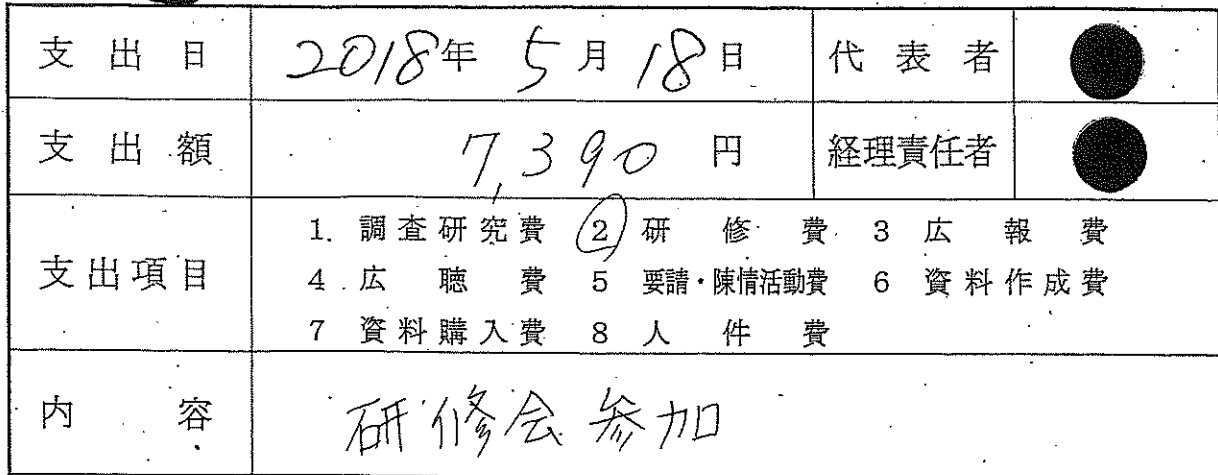 支出日 2018年 5月 18日 代表者
支出額 7,390 円 経理責任者
支出項目 1. 調査研究費 2 研修費 3 広報費
4 広聴費 5 要請・陳情活動費 6 資料作成費
7 資料購入費 8 人件費
内容 研修会参加